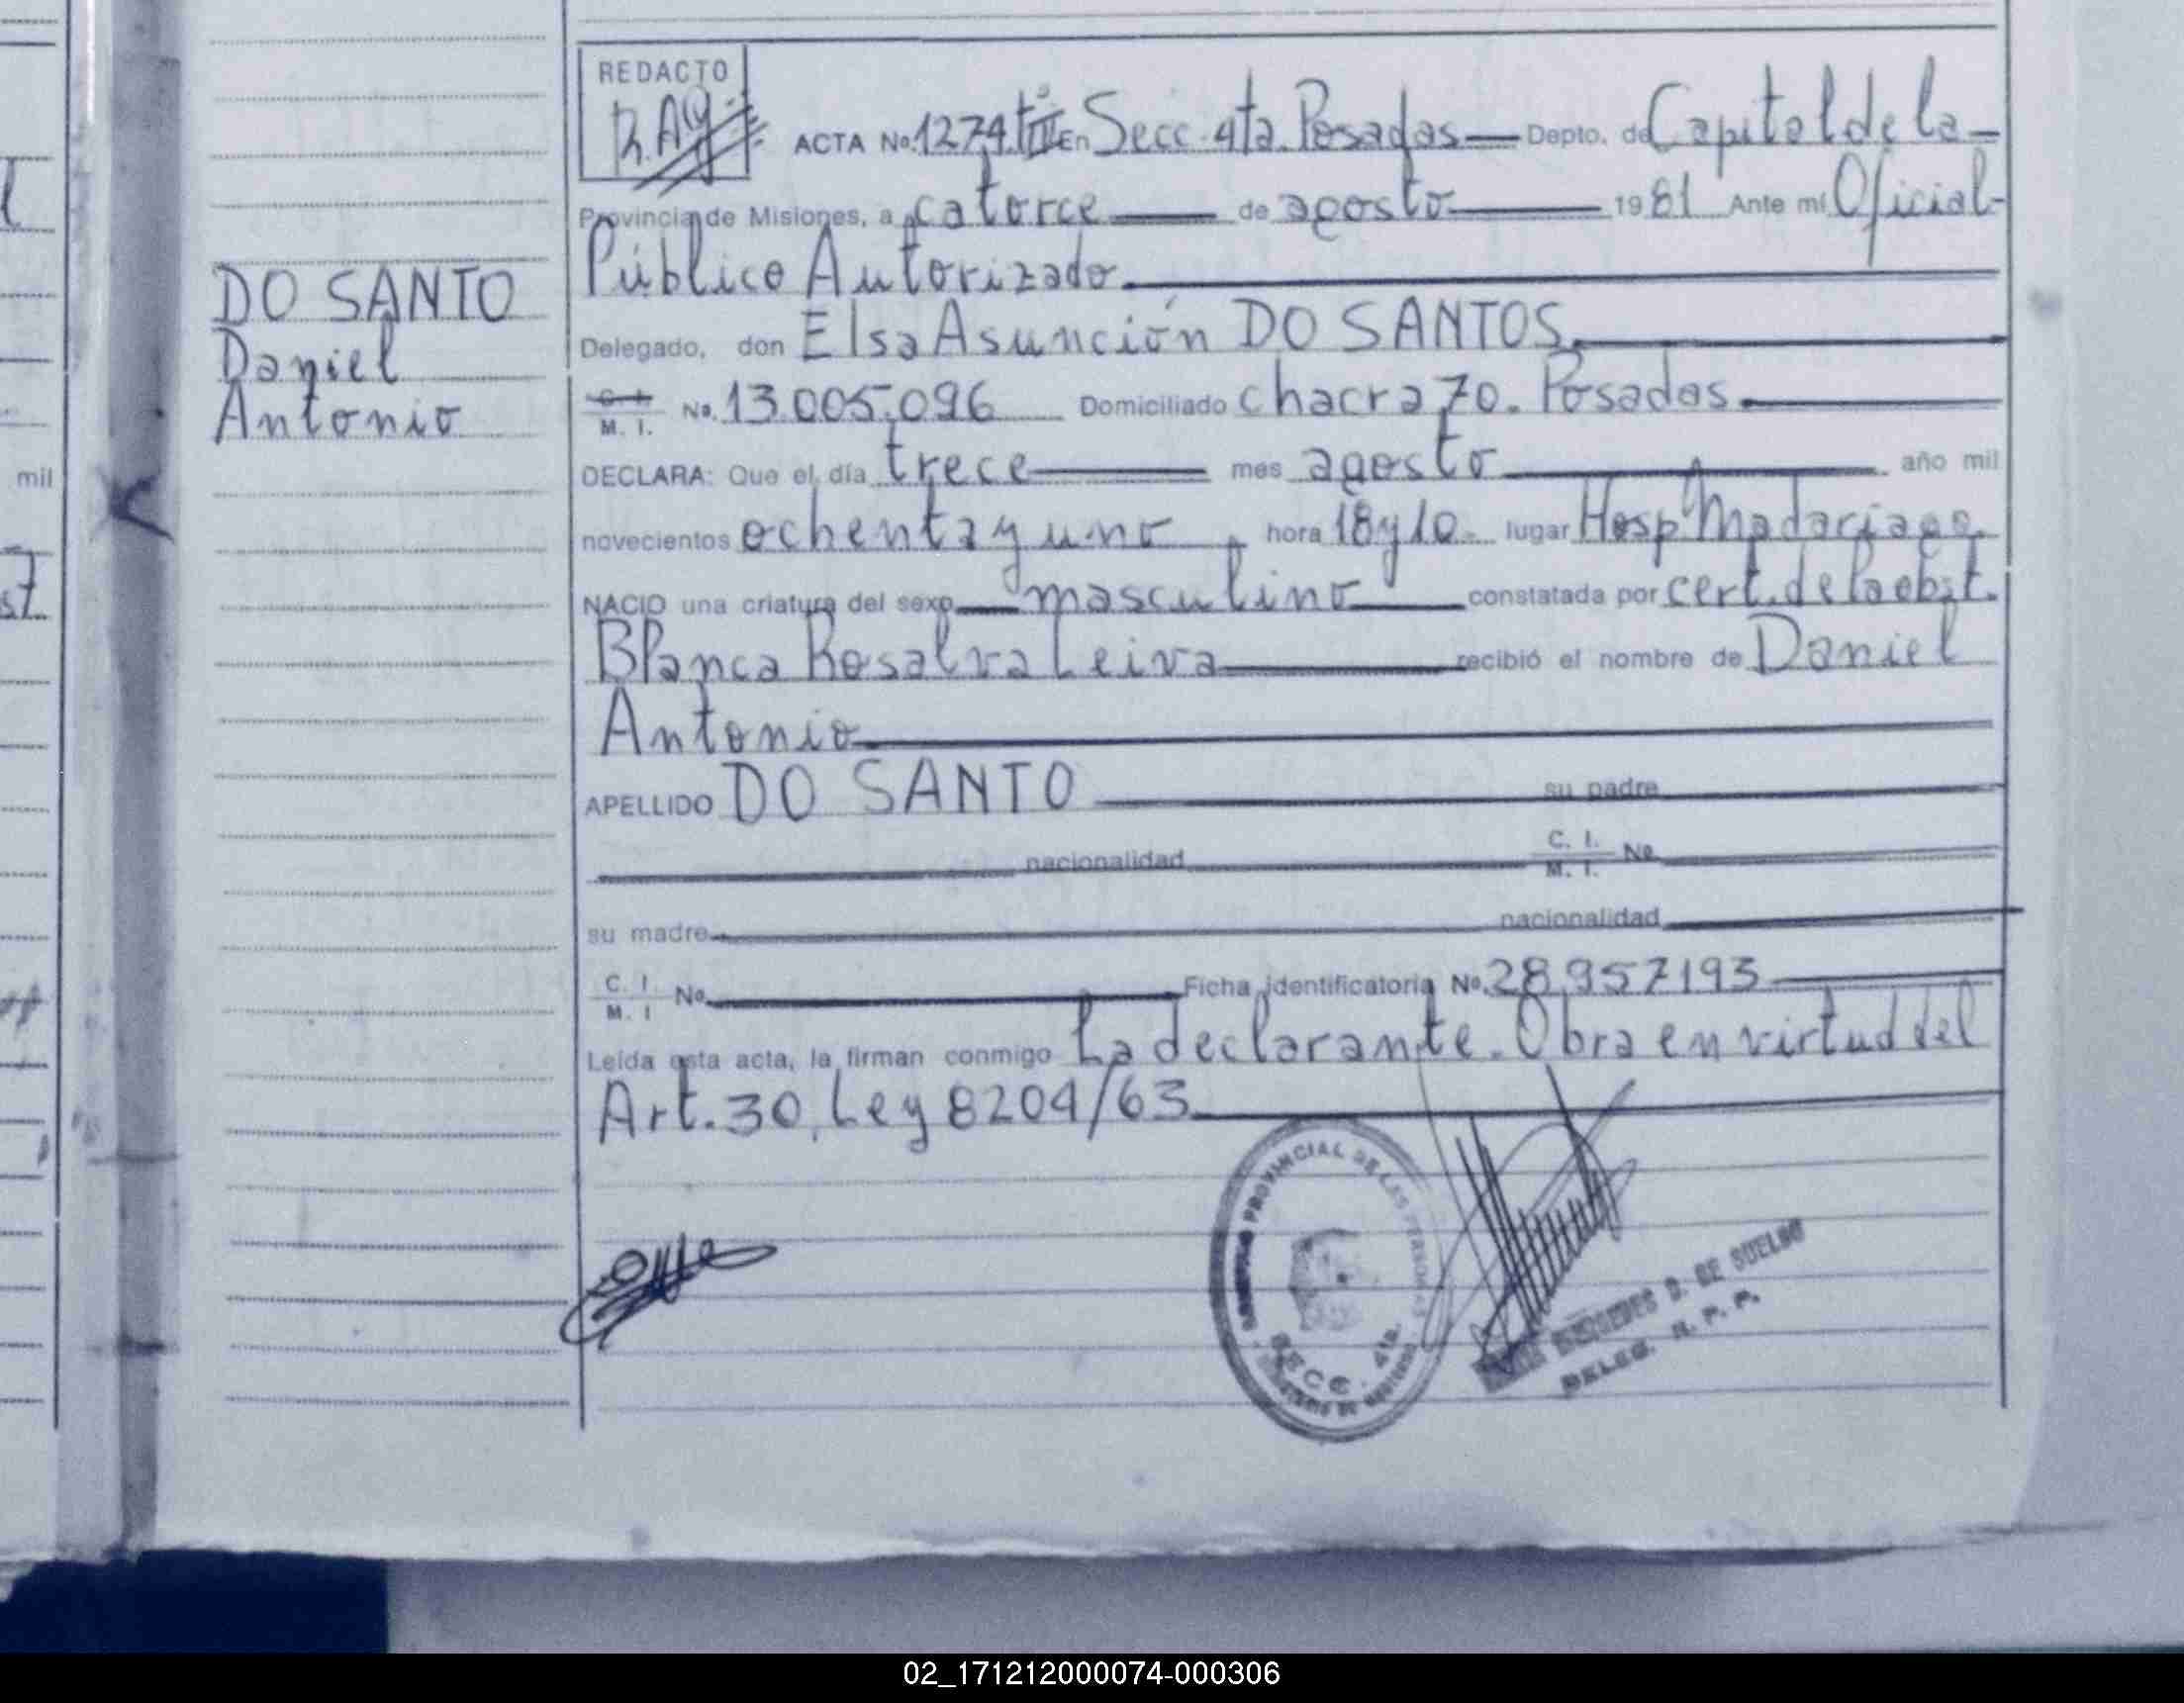 REDACTO
ACTA No. 1274 tº III En Secc. 4ta. Posadas Depto. de Capital de la
Provincia de Misiones, a catorce de agosto 1981 Ante mí Oficial
Público Autorizado.
DO SANTO
Daniel
Antonio
Delegado, don Elsa Asunción DO SANTOS.
C. I.
M. I. No. 13.005.096 Domiciliado chacra 70. Posadas.
DECLARA: Que el día trece mes agosto año mil
novecientos ochenta y uno hora 18 y 10. lugar Hosp Madariaga
NACIO una criatura del sexo masculino constatada por cert. de la obst.
Blanca Rosalva Leiva recibió el nombre de Daniel
Antonio
APELLIDO DO SANTO su padre
nacionalidad C. I.
M. I. No
su madre nacionalidad
C. I.
M. I No. Ficha identificatoria No. 28.957193
Leída esta acta, la firman conmigo La declarante. Obra en virtud del
Art. 30, Ley 8204/63
PROVINCIAL DE LAS PERSONAS
SECC. 4ta.
D. DE SUELDO
DELEG. R. P. P.
mil
02_171212000074-000306